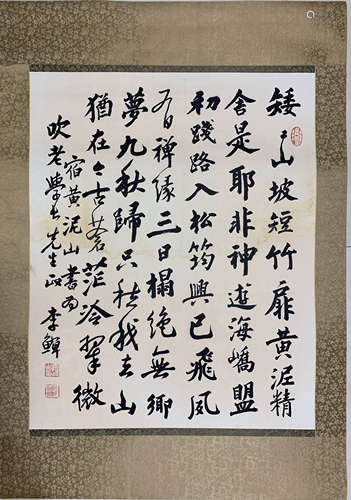 矮々山坡短竹扉黄泥精
舍是耶非神遊海嶠盟
初踐路入松筠興已飛風
百禅缘三日榻绝無鄉
夢九秋歸只秋我去山
猶在今古蒼茫冷翠微
宿黄泥山書為
吹老學長先生政 李鱓